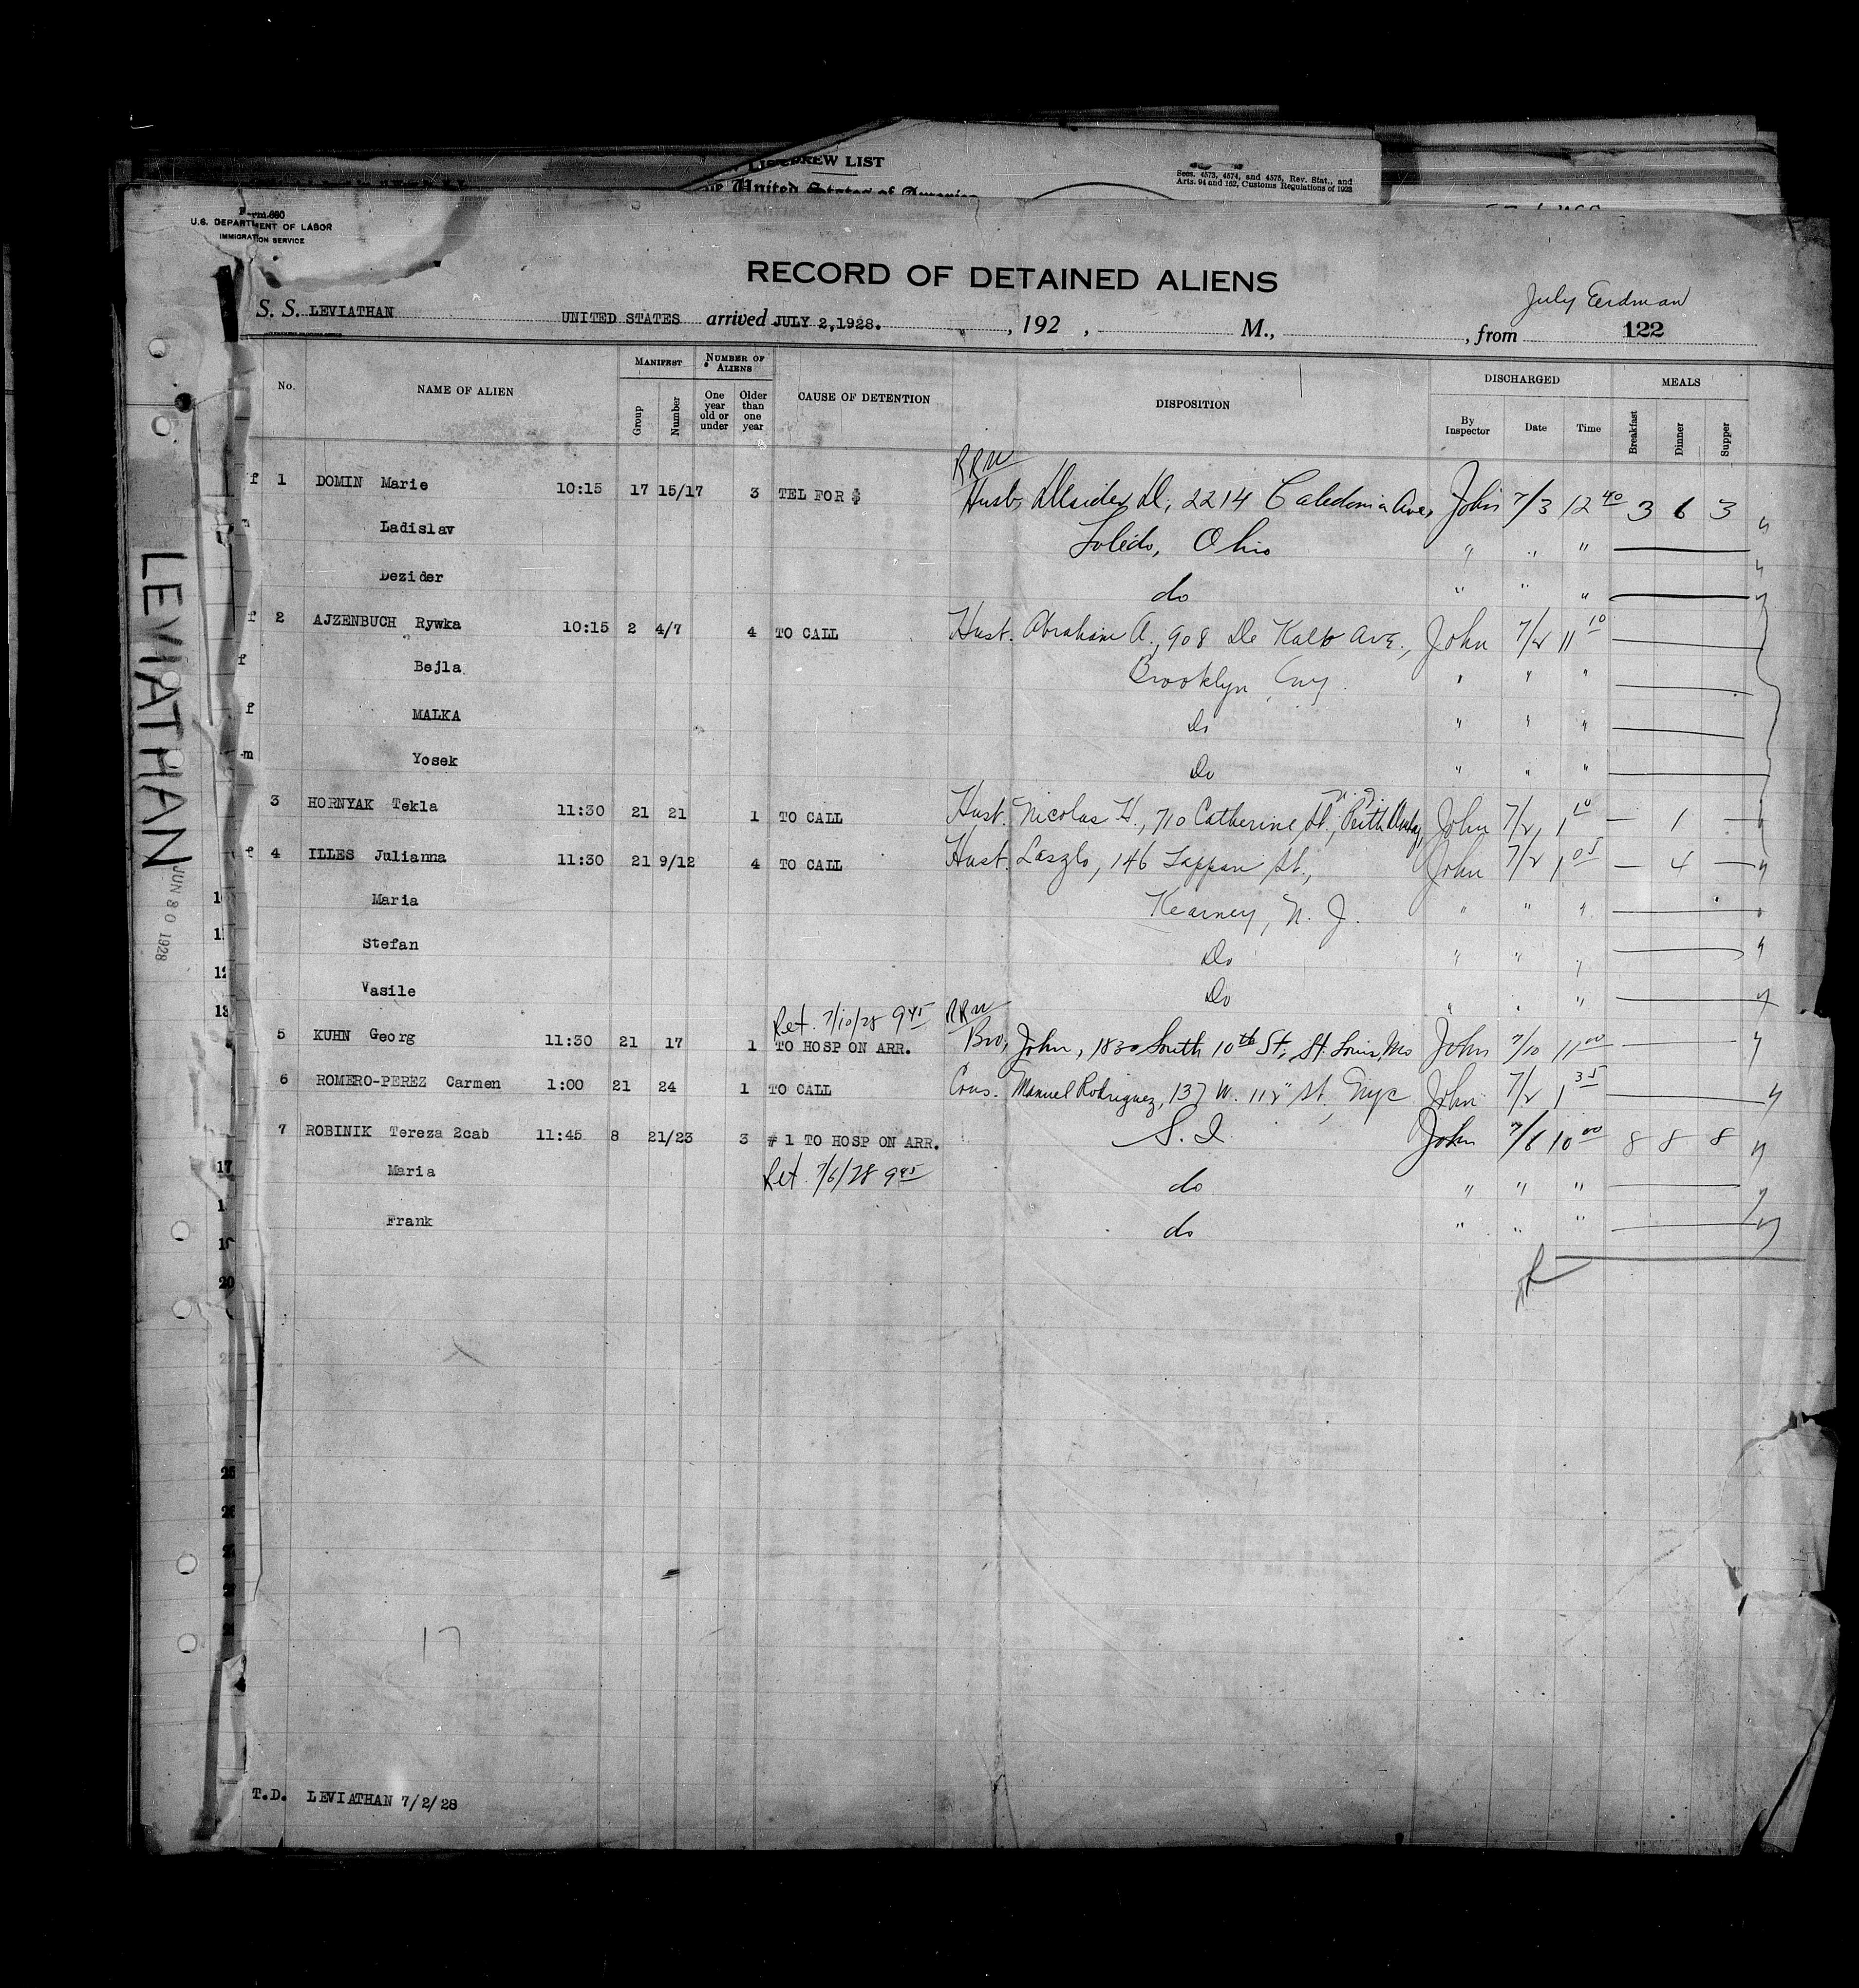 CREW LIST
United States of America
Secs. 4573, 4574, and 4575, Rev. Stat., and
Arts. 94 and 162, Customs Regulations of 1923
Form 660
U.S. DEPARTMENT OF LABOR
IMMIGRATION SERVICE
RECORD OF DETAINED ALIENS
July Erdman
S. S. LEVIATHAN UNITED STATES arrived JULY 2,1928. , 192 , M., , from 122
No. NAME OF ALIEN MANIFEST Group Number NUMBER OF ALIENS One year old or under Older than one year CAUSE OF DETENTION DISPOSITION DISCHARGED By Inspector Date Time MEALS Breakfast Dinner Supper
RRW
f 1 DOMIN Marie 10:15 17 15/17 3 TEL FOR $ Husb, Desider D, 2214 Caledonia Ave, John 7/3 12 40 3 6 3
Ladislav Toledo, Ohio " " "
Dezider do " " "
f 2 AJZENBUCH Rywka 10:15 2 4/7 4 TO CALL Husb. Abraham A., 908 De Kalb Ave., John 7/2 11 10
f Bejla Brooklyn, NY. " " "
f MALKA Do " " "
m Yosek Do " " "
3 HORNYAK Tekla 11:30 21 21 1 TO CALL Husb. Nicolas H., 710 Catherine St., Perth Amboy, N.J. John 7/2 1 10 — 1 —
f 4 ILLES Julianna 11:30 21 9/12 4 TO CALL Husb. Laszlo, 146 Tappan St., John 7/2 1 05 — 4 —
Maria Kearney, N. J. " " "
Stefan Do " " "
Vasile Do " " "
Ret. 7/10/28 9 45 RRW
5 KUHN Georg 11:30 21 17 1 TO HOSP ON ARR. Bro, John, 1830 South 10th St, St. Louis, Mo John 7/10 11 00
6 ROMERO-PEREZ Carmen 1:00 21 24 1 TO CALL Cous. Manuel Rodriguez, 137 W. 112" St, NYC John 7/2 1 35
7 ROBINIK Tereza 2cab 11:45 8 21/23 3 # 1 TO HOSP ON ARR. S. I. John 7/6 10 00 8 8 8
Maria Ret. 7/6/28 9 45 do " " "
Frank do " " "
LEVIATHAN
JUN 30 1928
17
20
25
17
T.D. LEVIATHAN 7/2/28